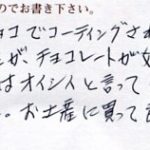 のでお書き下さい。
ョコでコーティングされ
が、チョコレートが
はオイシイと言って
お土産に買って